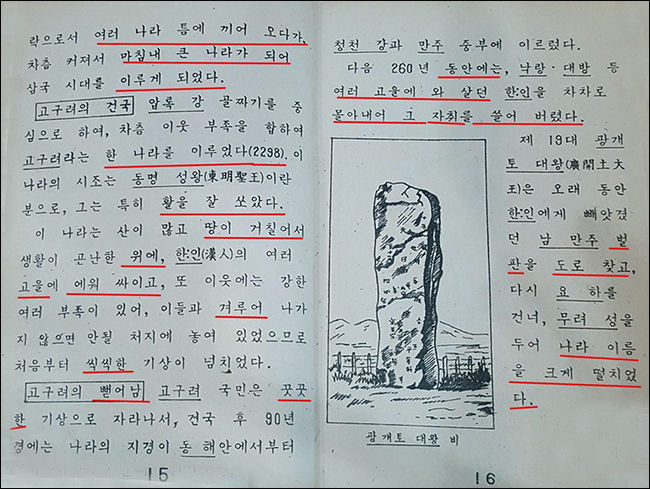 락으로서 여러 나라 틈에 끼어 오다가,
차츰 커져서 마침내 큰 나라가 되어
삼국 시대를 이루게 되었다.
고구려의 건국 압록 강 골짜기를 중
심으로 하여, 차츰 이웃 부족을 합하여
고구려라는 한 나라를 이루었다(2298). 이
나라의 시조는 동명 성왕(東明聖王)이란
분으로, 그는 특히 활을 잘 쏘았다.
이 나라는 산이 많고 땅이 거칠어서
생활이 곤난한 위에, 한인(漢人)의 여러
고을에 에워 싸이고, 또 이웃에는 강한
여러 부족이 있어, 이들과 겨루어 나가
지 않으면 안될 처지에 놓여 있었으므로
처음부터 씩씩한 기상이 넘치었다.
고구려의 뻗어남 고구려 국민은 꿋꿋
한 기상으로 자라나서, 건국 후 90년
경에는 나라의 지경이 동 해안에서부터
15
청천 강과 만주 중부에 이르렀다.
다음 260년 동안에는, 낙랑·대방 등
여러 고을에 와 살던 한인을 차차로
몰아내어 그 자취를 쓸어 버렸다.
제 19대 광개
토 대왕(廣開土大
王)은 오래 동안
한인에게 빼앗겼
던 남 만주 벌
판을 도로 찾고,
다시 요 하를
건너, 무려 성을
두어 나라 이름
을 크게 떨치었
다.
광개토 대왕 비
16